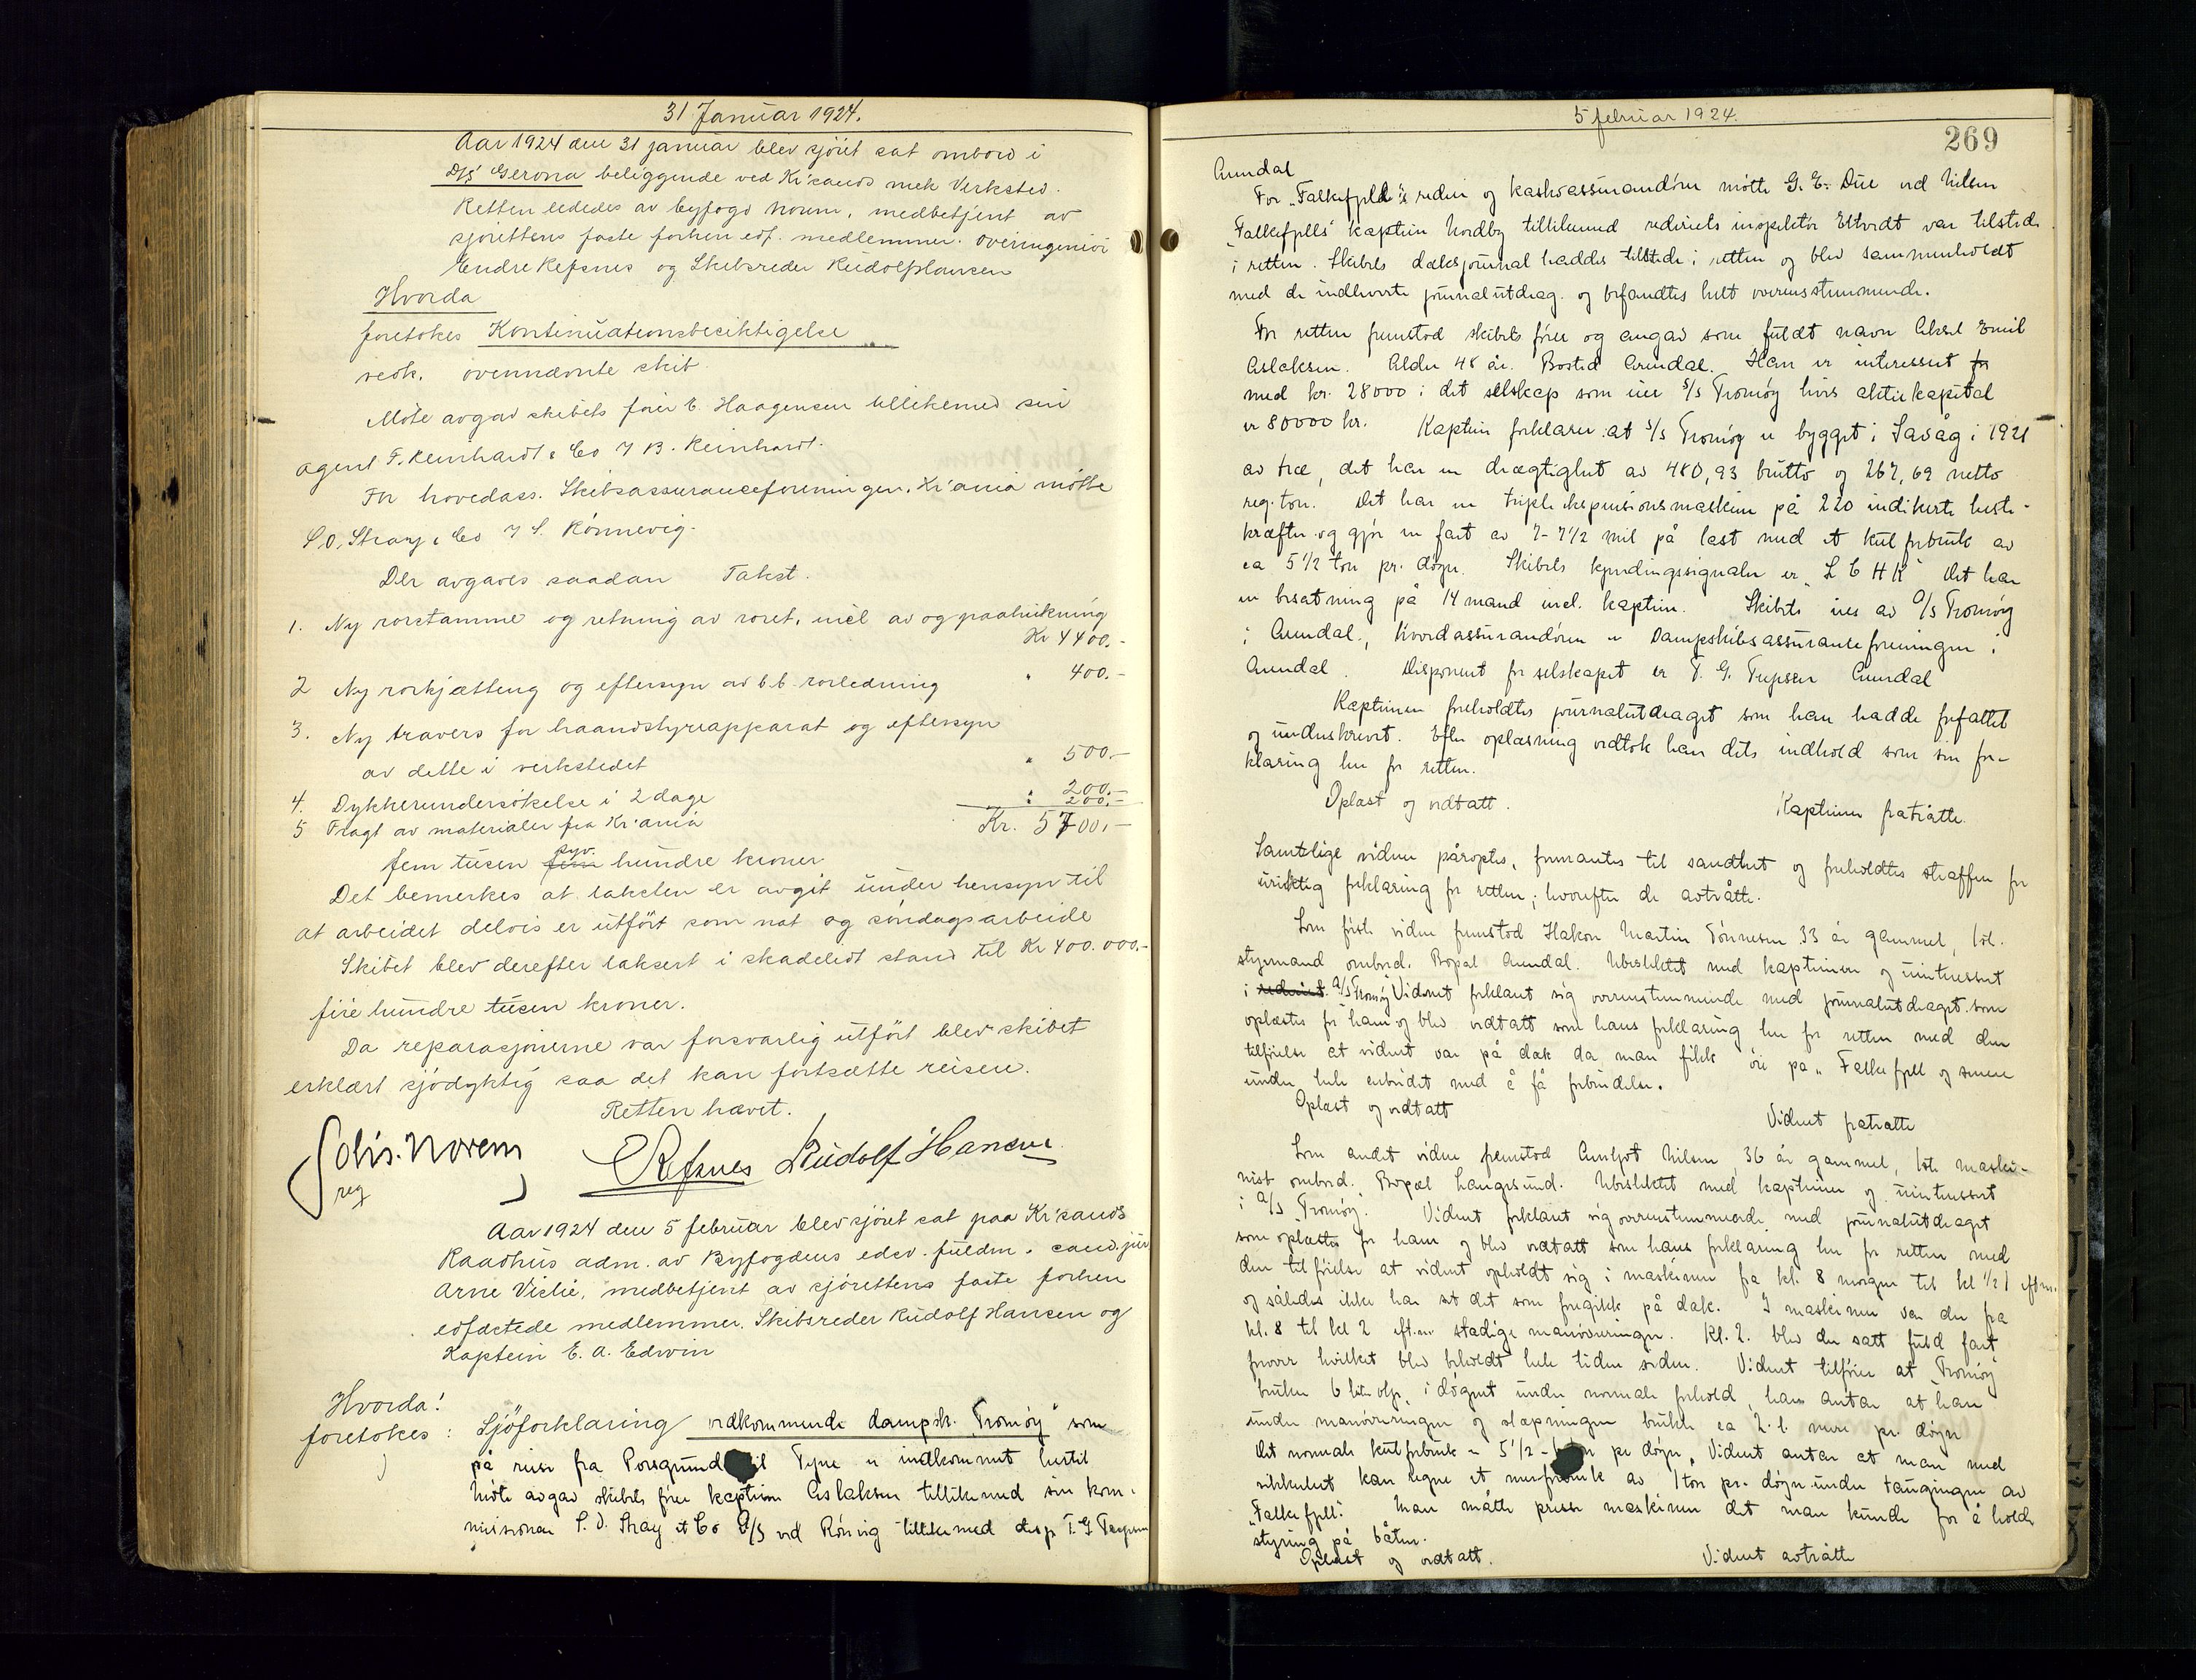 31 Januar 1924.
Aar 1924 den 31 januar blev sjöret sat ombord i
D/S Gerona beliggende ved Kr'sands mek Verksted.
Retten lededes av byfogd Norem, medbetjent av
sjörettens faste forhen edf. medlemmer. overingeniör
Endre Refsnes og Skibsreder Rudolf Hansen
Hvorda
foretokes Kontinuationsbesiktigelse
vedk. ovennævnte skib.
Möte avgav skibets förer E. Haagensen tillikemed sin
agent F. Reinhardt & Co v B. Reinhardt.
For hovedass. Skibsassuranceforeningen, Kr'ania mötte
S. O. Stray & Co v S. Rönnevig.
Der avgaves saadan Takst.
1. Ny rorstamme og retning av roret, incl av og paahukning
Kr 4400.-
2 Ny rorkjætting og eftersyn av b.b. rorledning " 400.-
3. Ny travers for haandstyreapparat og eftersyn
av dette i verkstedet " 500.-
4. Dykkerundersökelse i 2 dage " 200.-
5 Fragt av materialer fra Kr'ania " 200.-
Kr. 5700.-
fem tusen fem syv. hundre kroner
Det bemerkes at taksten er avgit under hensyn til
at arbeidet delvis er utfört som nat og söndagsarbeide
Skibet blev derefter taksert i skadelidt stand til Kr 400.000.-
fire hundre tusen kroner.
Da reparasjonerne var forsvarlig utfört blev skibet
erklært sjödyktig saa det kan fortsætte reisen.
Retten hævet.
Chr. Norem
reg
Refsnes Rudolf Hansen
Aar 1924 den 5 februar blev sjöret sat paa Kr'sands
Raadhus adm. av Byfogdens edsv. fuldm. cand. jur
Arne Vislie, medbetjent av sjörettens faste forhen
edfæstede medlemmer. Skibsreder Rudolf Hansen og
Kaptein E. A. Edwin
Hvorda!
foretokes: Sjöforklaring vedkommende dampsk. "Tromöy" som
på reise fra Porsgrund til Tyne er indkommet hertil
Möte avgav skibets förer kaptein Aslaksen tillikemed sin kom-
misionær S. O. Stray et Co A/S ved Rönvig tillikemed disp T. G.
5 februar 1924.
269
Arendal
For "Falkefjell"s rederi og kaskoassurandörer mötte G. E. Due ved Nilsen
"Falkefjells" kaptein Nordby tillikemed rederiets inspektör Eltvedt var tilstede
i retten. Skibets dæksjournal haddes tilstede i retten og blev sammenholdt
med de indleverte journalutdrag og befandtes helt overensstemmende.
For retten fremstod skibets förer og angav som fuldt navn Aksel Emil
Aslaksen. Alder 48 år. Bosted Arendal. Han er interessert for
med kr. 28000 i det selskap som eier S/S Tromöy hvis aktiekapital
er 80000 kr. Kaptein forklarer: at S/S Tromöy er bygget i Såvåg i 1921
av træ, det har en drægtighet av 480,93 brutto og 267,69 netto
reg. ton. Det har en triple ekspansionsmaskine på 220 indikerte heste-
kræfter og gjör en fart av 7-7 1/2 mil på last med et kulforbruk av
ca 5 1/2 ton pr. dögn. Skibets kjendingssignaler er "L C H K" Det har
en besætning på 14 mand incl. kaptein. Skibet eies av A/S Tromöy
i Arendal, Hovedassurandören er Dampskibsassuranceforeningen i
Arendal. Disponent for selskapet er T. G. Arendal
Kapteinen foreholdtes journalutdraget som han hadde forfattet
og underskrevet. Efter oplæsning vedtok han dets indhold som sin for-
klaring her for retten.
Oplæst og vedtatt. Kapteinen fratråtte.
Samtlige vidner påroptes, formantes til sandhet og foreholdtes straffen for
uriktig forklaring for retten; hvorefter de avtråtte.
Som förste vidne fremstod Hakon Martin Tönnesen 33 år gammel, 1st.
styrmand ombord. Bopæl Arendal. Ubeslektet med kapteinen og uinteressert
i rederiet. A/S Tromöy Vidnet forklaret sig overenstemmende med journalutdraget som
oplæstes for ham og blev vedtatt som hans forklaring her for retten med den
tilföielse at vidnet var på dæk da man fikk öie på "Falkefjell og senere
under hele arbeidet med å få forbindelse.
Oplæst og vedtatt Vidnet fratrådte
Som andet vidne fremstod Amljot Nilsen, 36 år gammel, 1ste maski-
nist ombord. Bopæl Langesund. Ubeslektet med kapteinen og uinteressert
i A/S "Tromöy". Vidnet forklaret sig overenstemmende med journalutdraget
som oplæstes for ham og blev vedtatt som hans forklaring her for retten med
den tilföielse at vidnet opholdt sig i maskinen fra kl. 8 morgen til kl 1/2 1 eftm.
og således ikke har set det som foregikk på dæk. I maskinen var der fra
kl. 8 til kl 2 eft.m. stadige manövreringer. Kl. 2. blev der satt fuld fart
forover hvilket blev beholdt hele tiden siden. Vidnet tilföier at Tromöy
bruker 6 liter olje i dögnet under normale forhold, han antar at han
under manövreringen og slæpningen brukte ca 2 l. mere pr. dögn
Det normale kulforbruk er 5 1/2 - 6 ton pr dögn, Vidnet antar at man med
sikkerhet kan regne et merforbruk av 1 ton pr. dögn under taugingen av
"Falkefjell". Man måtte presse maskinen det man kunde for å holde
styring på båten.
Oplæst og vedtatt. Vidnet avtråtte